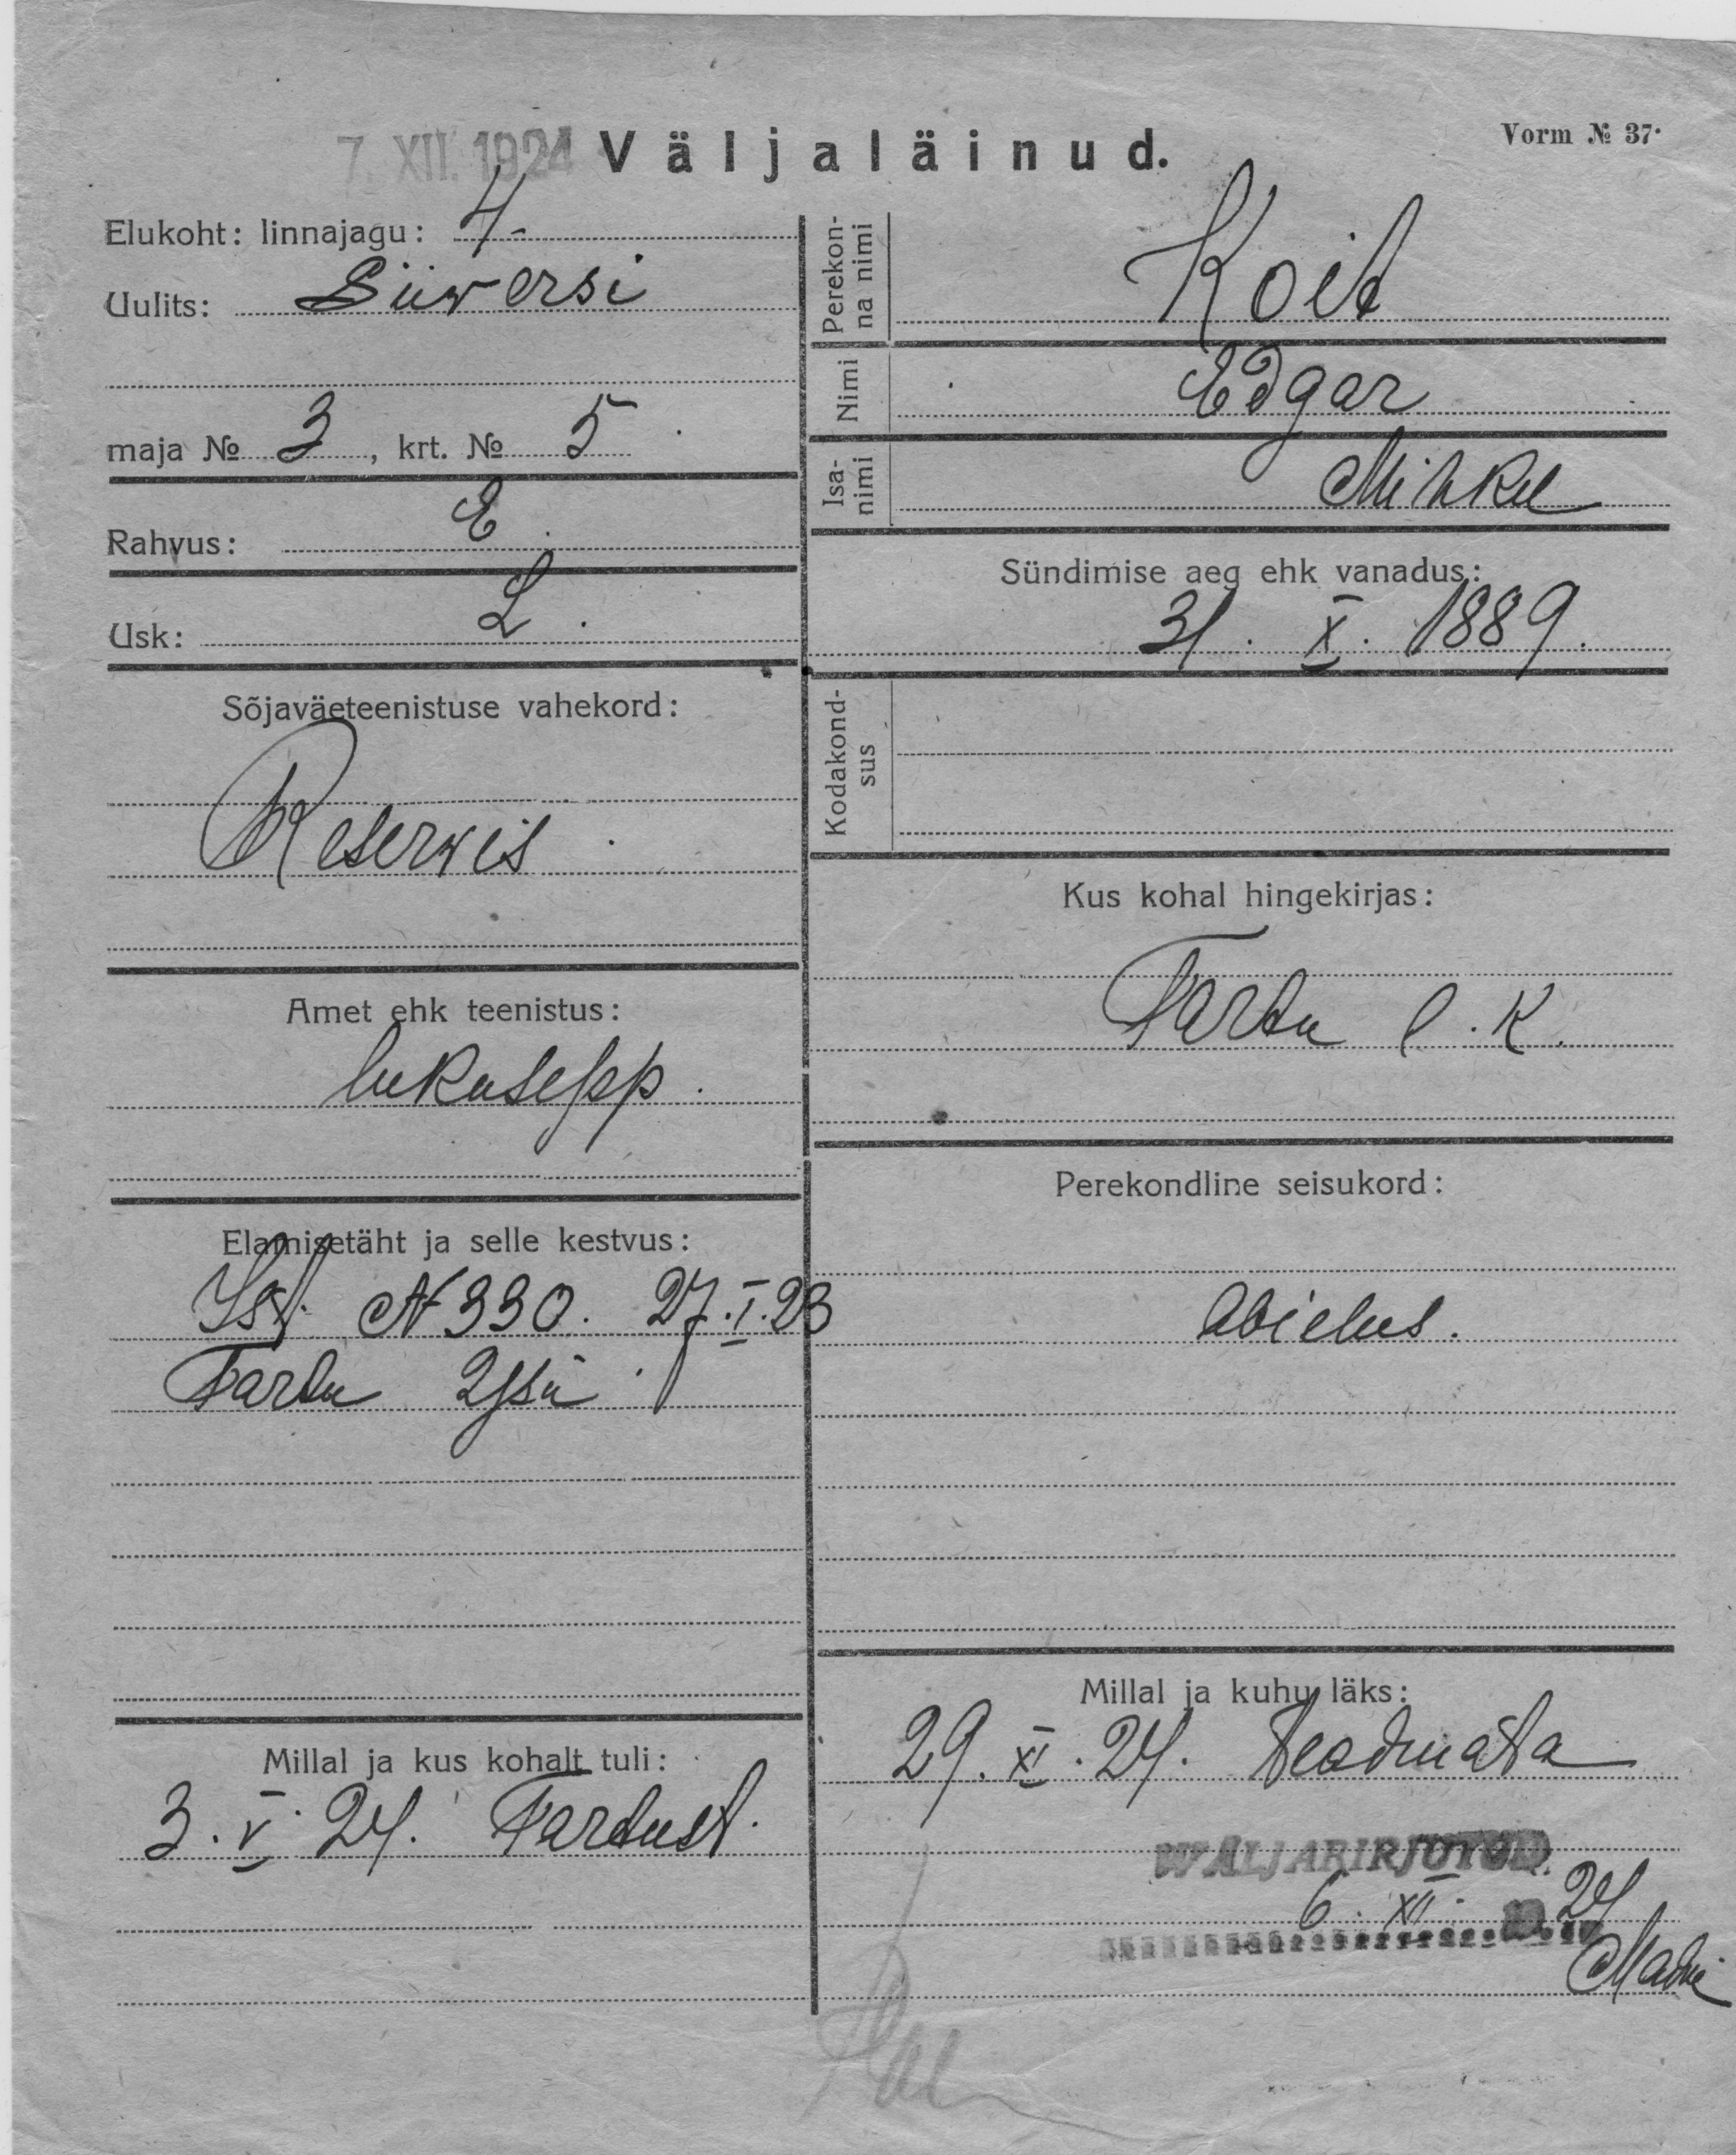 7. XII. 1924 Väljaläinud.
Vorm № 37.
Elukoht: linnajagu: 4-
Uulits: Siiwersi
maja № 3, krt. № 5
Rahvus: E.
Usk: L.
Sõjaväeteenistuse vahekord:
Reserwis
Amet ehk teenistus:
lukusepp.
Elamisetäht ja selle kestvus:
N 330. 27.I.23
Tartu
Millal ja kus kohalt tuli:
3. V. 24. Tartust.
Perekon-
na nimi
Koit
Nimi
Edgar
Isa-
nimi
Mihkel
Sündimise aeg ehk vanadus:
31. X. 1889.
Kodakond-
sus
Kus kohal hingekirjas:
Tartu l. k.
Perekondline seisukord:
abielus.
Millal ja kuhu läks:
29. XI. 24. teadmata
WÄLJAKIRJUTUD.
6. XII. 24